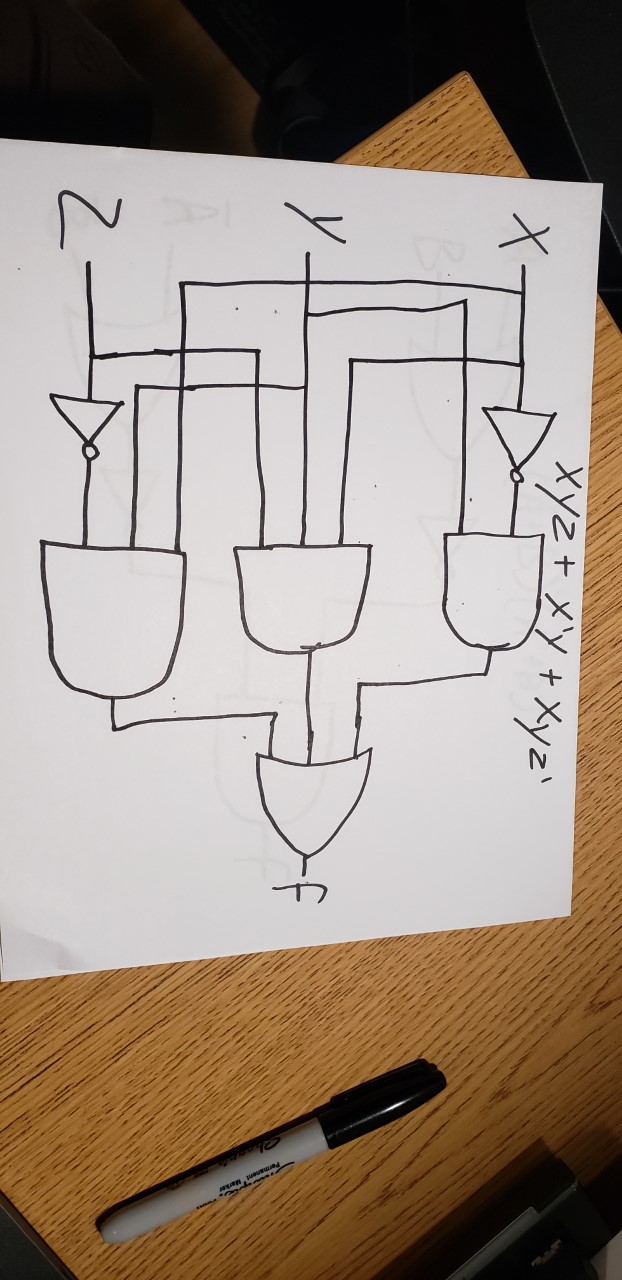 xyz + x'y + xyz'
X
y
Z
F
Sharpie
Permanent Marker